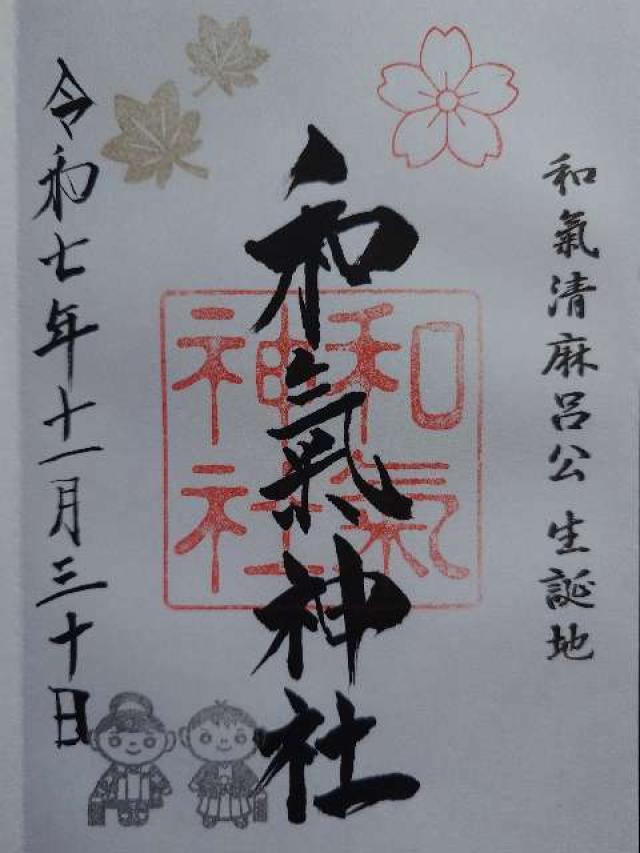 和氣清麻呂公 生誕地
和氣神社
和氣
神社
令和七年十一月三十日